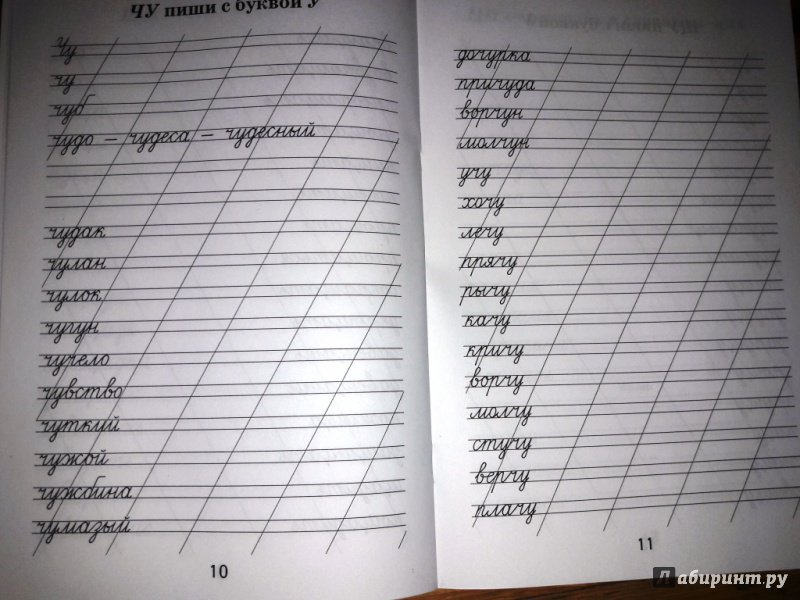 ЧУ пиши с буквой У
Чу
чу
чуб
чудо – чудеса – чудесный
чудак
чулан
чулок
чугун
чучело
чувство
чуткий
чужой
чужбина
чумазый
10
дочурка
причуда
ворчун
молчун
учу
хочу
лечу
прячу
рычу
качу
кричу
ворчу
молчу
стучу
верчу
плачу
11
Лабиринт.ру